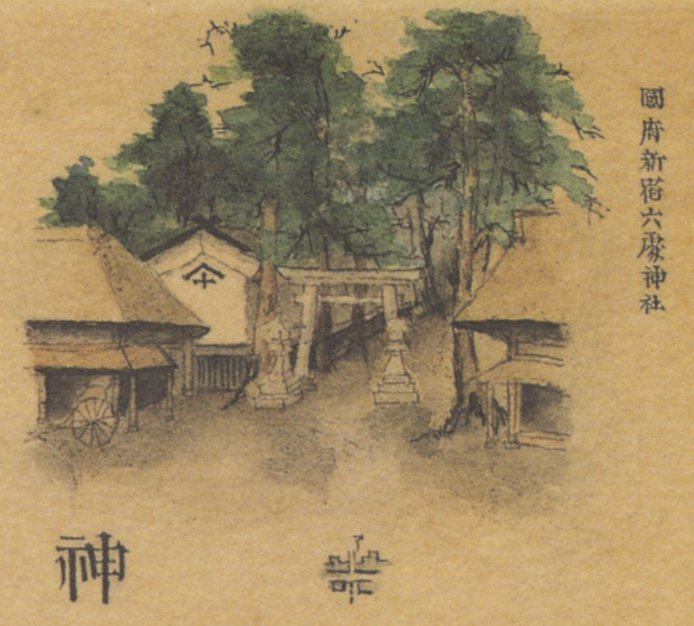 國府新宿六處神社
神